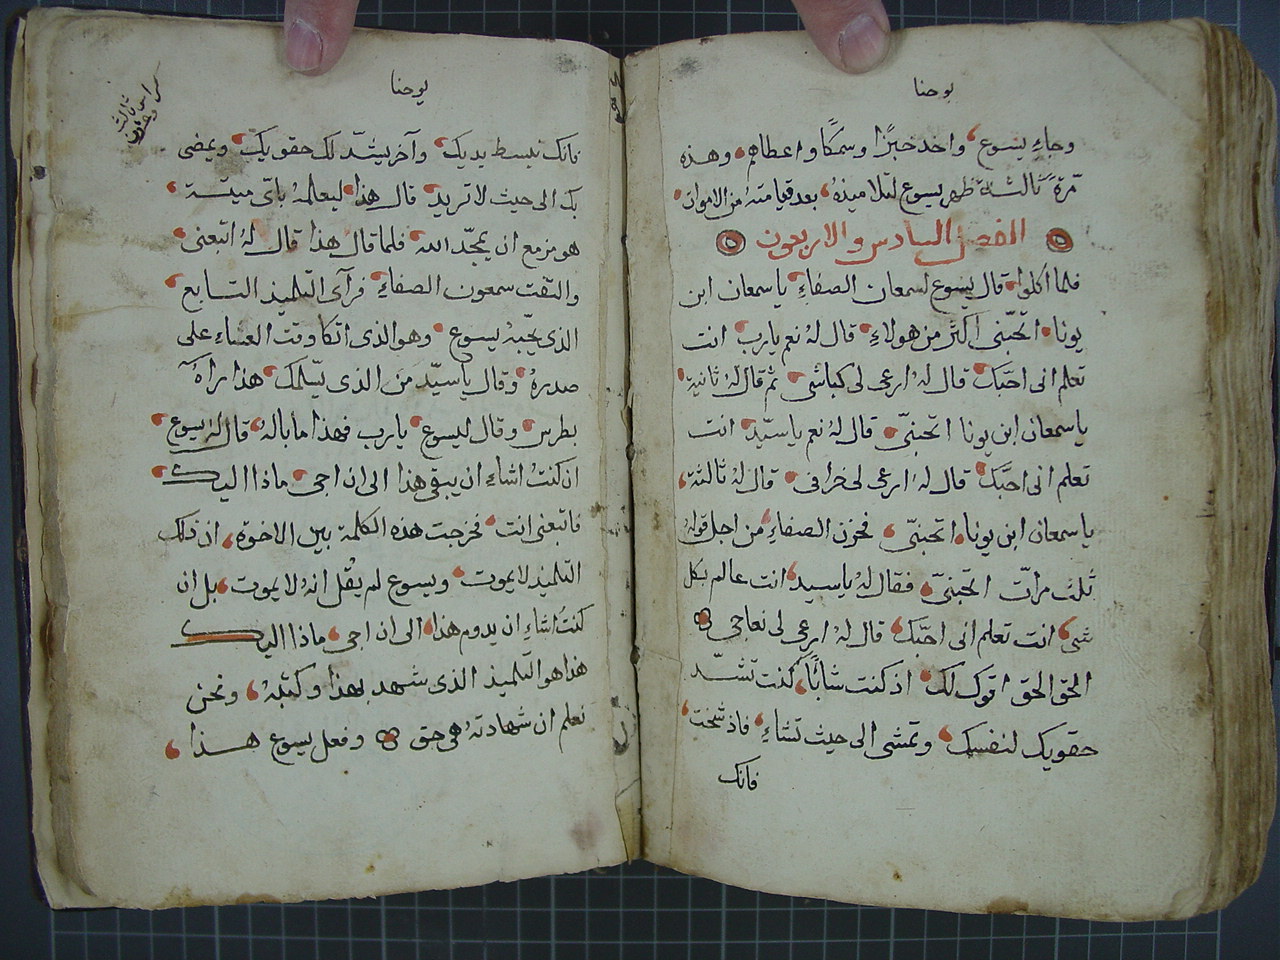 يوحنا
وجاء يسوع واخد خبزًا وسمكًا واعطاهم وهذه
مرة ثالثة ظهر يسوع لتلاميذه بعد قيامته من الاموات
الفصل السادس والاربعون
فلما اكلوا قال يسوع لسمعان الصفاء ياسمعان ابن
يونا اتحبّني اكثر من هولاء قال له نعم يارب انت
تعلم انى احبّك قال له ارعى لى كباشى ثم قال له ثانية
ياسمعان ابن يونا اتحبنىّ قال له نعم ياسيّد انت
تعلم انى احبّك قال له ارعى لى خرافى قال له ثالثة
ياسمعان ابن يونا اتحبنىّ فحزن الصفاء من اجل قوله
ثلث مرات اتحبنىّ فقال له ياسيد انت عالم بكل
شى انت تعلم انى احبّك قال له ارعى لى نعاجى
الحق الحق اقوك لك اذ كنت شابًا كنت تشـد
حقويك لنفسك وتمشى الى حيث تشاء فاذ شخت
فانك
يوحنا
كراس ثالث وعشرون
فانك تبسط يديك وآخر يشدّ لك حقويك ويمضى
بك الى حيث لا تريد قال هذا ليعلم باىّ ميتـة
هو مزمع ان يمجّد الله فلما قال هذا قال له اتبعنى
والتفت سمعون الصفاء فرآى التلميذ التـابع
الذى يحبّه يسوع وهو الذى اتكا وقت العشاء على
صدره وقال ياسيّد من الذى يسّلمك هذا رآه
بطرس وقال ليسوع يارب فهذا ما باله قال له يسوع
ان كنت اشاء ان يبقى هذا الى ان اجى ماذا اليك
فاتبعنى انت فخرجت هذه الكلمة بين الاخوة ان ذلك
التلميذ لا يموت ويسوع لم يقل انه لا يموت بل ان
كنت اشاء ان يدوم هذا الى ان اجى ماذا اليك
هذا هو التلميذ الذى شهد بهذا وكتبه ونحن
نعلم ان شهادته هى حق وفعل يسوع هـذا